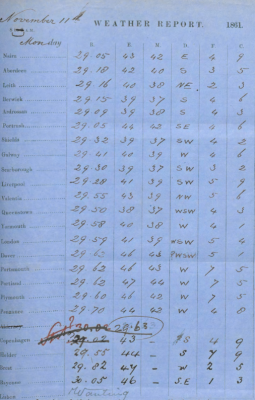 November 11th
WEATHER REPORT. 1861.
Monday
B. E. M. D. F. C.
Nairn 29.05 43 42 E 4 9
Aberdeen 29.18 42 40 S 3 5
Leith 29.16 40 38 NE 2 3
Berwick 29.15 39 37 S 4 6
Ardrossan 29.09 39 38 S 4 3
Portrush 29.05 44 42 SE 4 6
29.32 39 37 SW 4 2
Galway 29.41 40 39 W 4 6
Scarborough 29.30 39 37 SW 3 2
Liverpool 29.28 41 39 SW 5 9
Valentia 29.55 43 39 NW 5 6
Queenstown 29.50 38 37 WSW 4 3
Yarmouth 29.58 40 38 W 4 1
London 29.59 41 39 WSW 5 4
Dover 46 43 WSW 5 1
Portsmouth 29.62 46 43 W 7 5
Portland 29.62 47 44 W 7 5
Plymouth 29.60 46 42 W 7 5
Penzance 29.70 44 42 W 4 8
29.68
Copenhagen 43 – 4 9
Helder 29.55 44 – S 7 9
Brest 29.82 47 – W 2 3
Bayonne 30.05 46 – SE 1 3
Lisbon Wanting